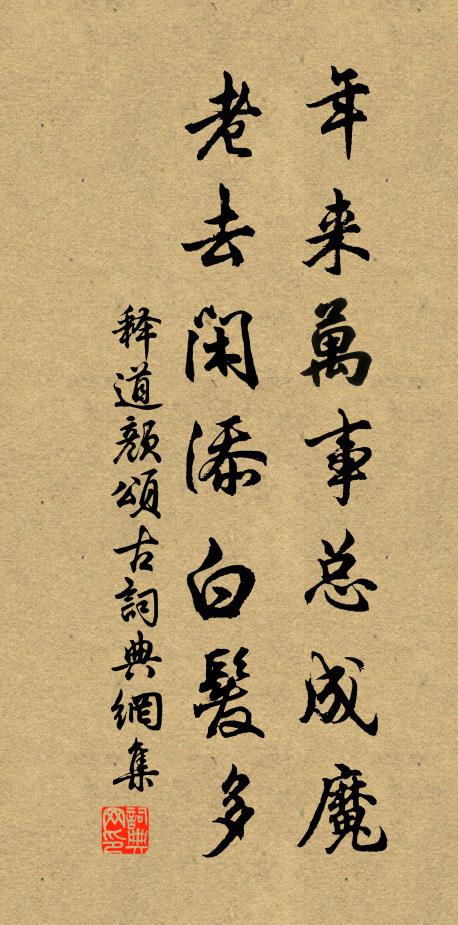 年来萬事总成魔
老去閑添白髮多
释道顏頌古詞典網集
詞典网印